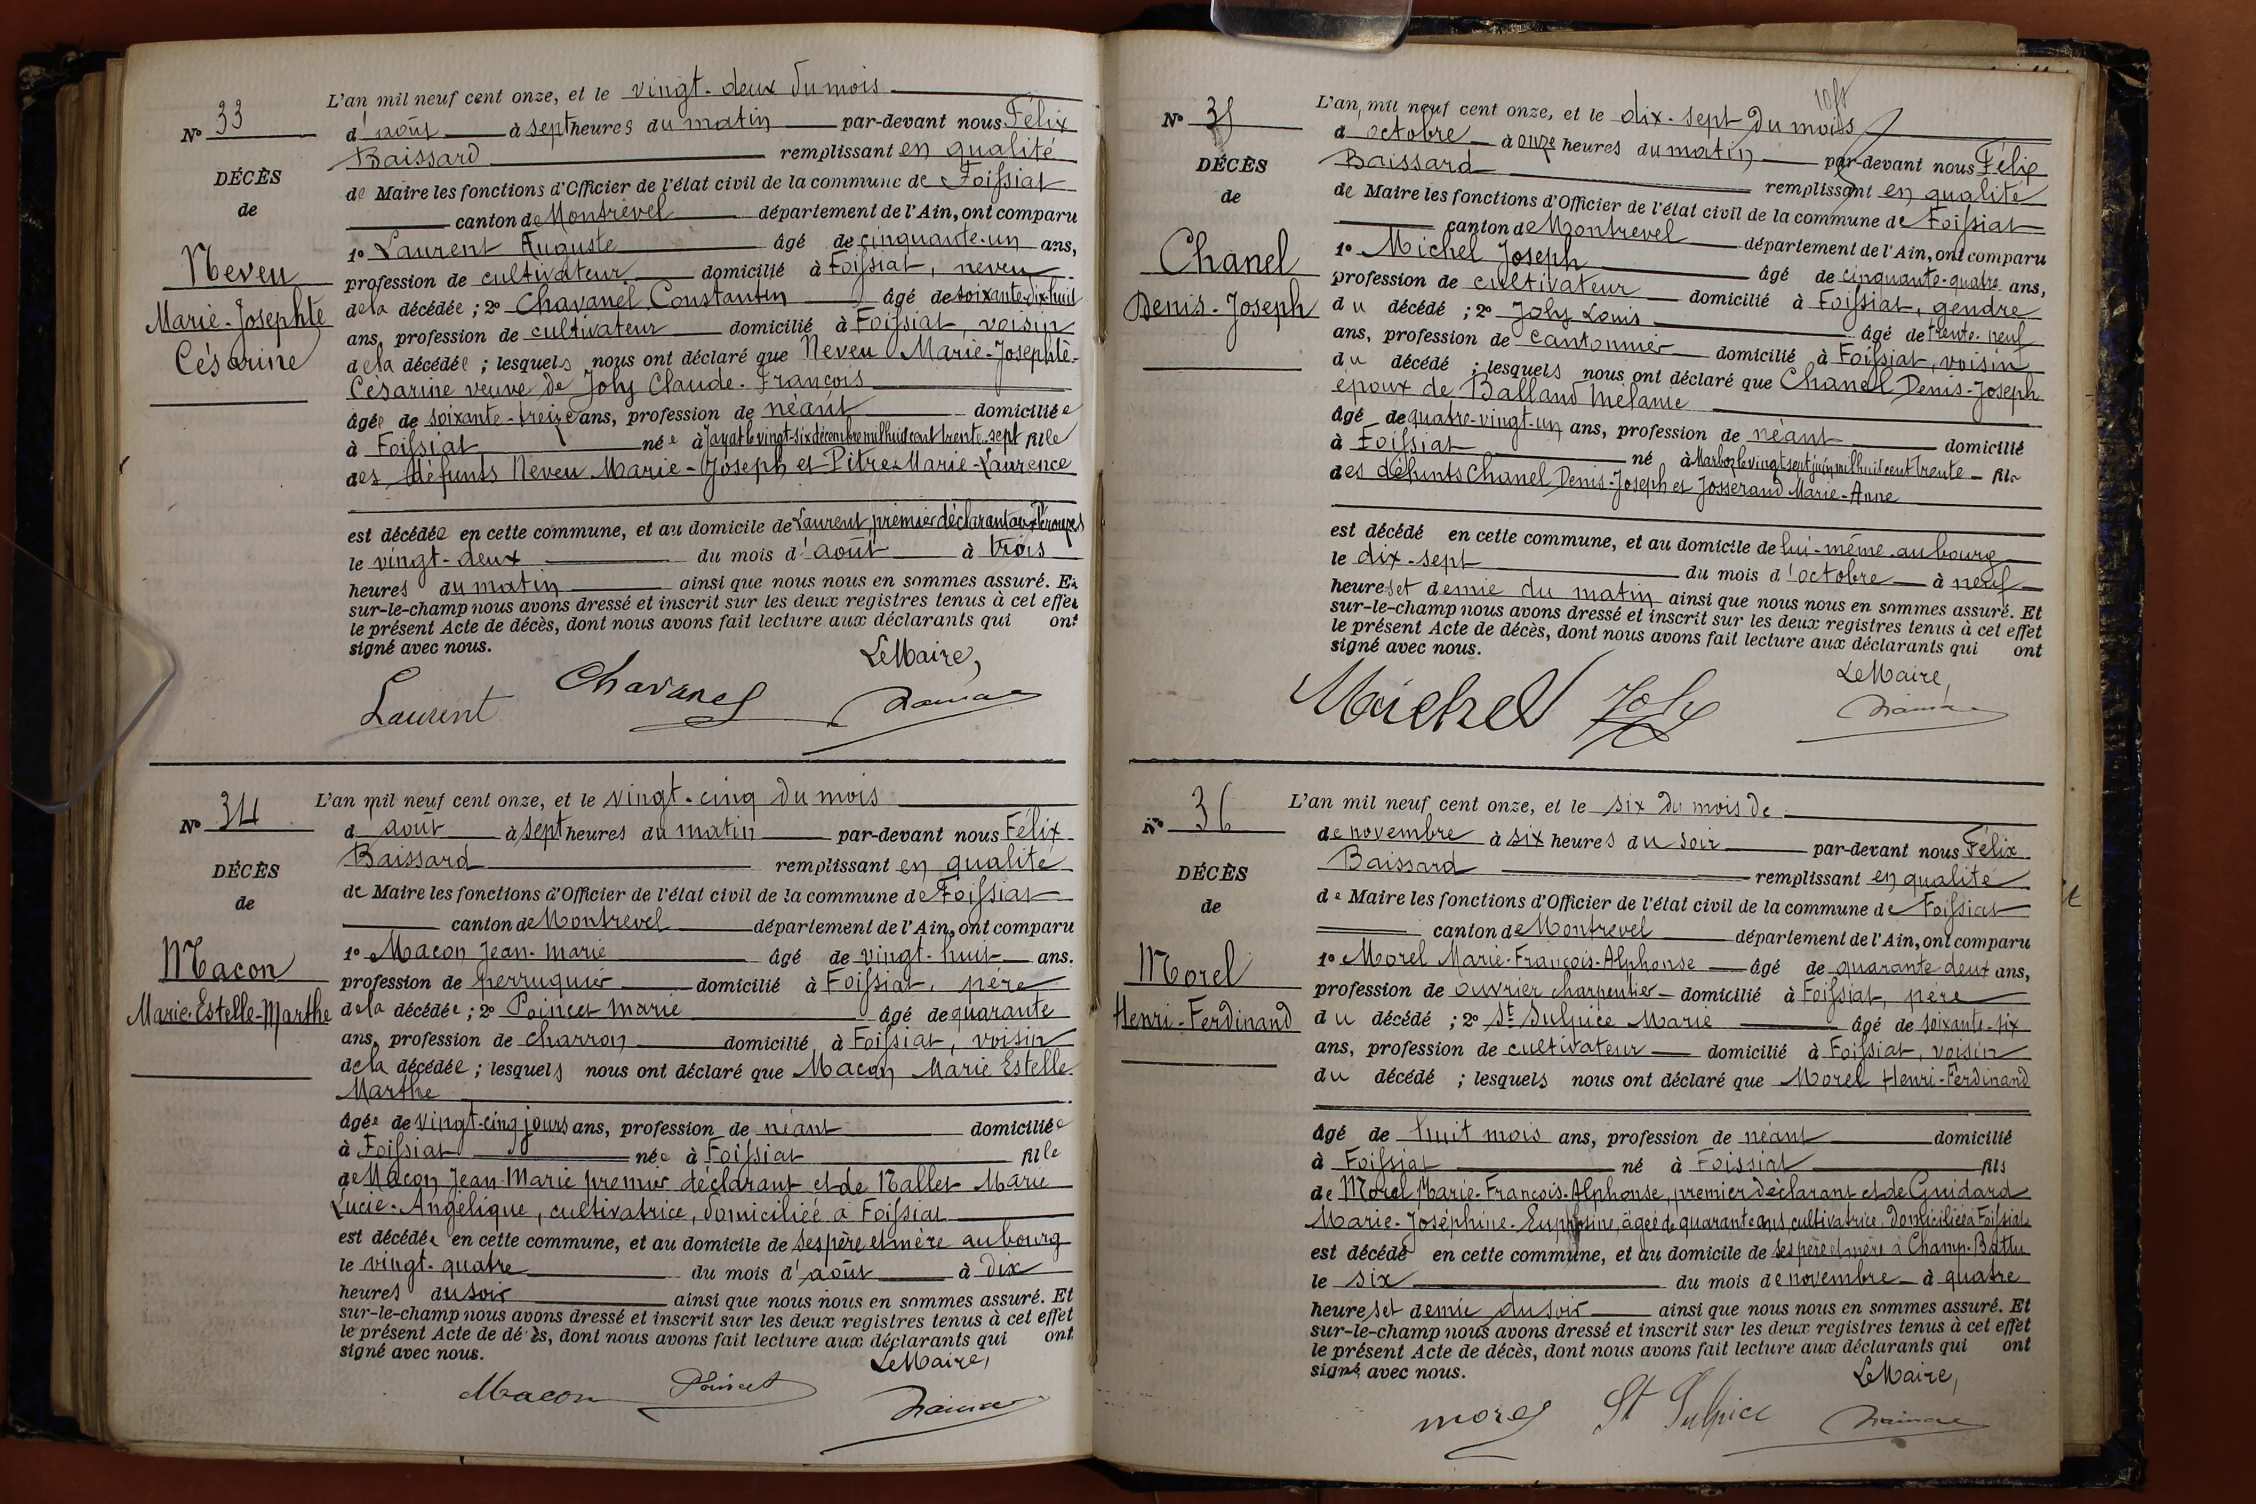 N° 33
DÉCÈS
de
Neveu
Marie-Josephte
Césarine
L'an mil neuf cent onze, et le vingt-deux du mois
d'août à sept heures du matin par-devant nous Félix
Baissard remplissant en qualité
de Maire les fonctions d'Officier de l'état civil de la commune de Foissiat
canton de Montrevel département de l'Ain, ont comparu
1° Laurent Auguste âgé de cinquante-un ans,
profession de cultivateur domicilié à Foissiat, neveu
de la décédée ; 2° Chavanel Constantin âgé de soixante-dix huit
ans, profession de cultivateur domicilié à Foissiat, voisin
de la décédée ; lesquels nous ont déclaré que Neveu Marie-Josephte-
Césarine veuve de Joly Claude-François
âgée de soixante-treize ans, profession de néant domiciliée
à Foissiat née à Jayat le vingt-six décembre mil huit cent trente-sept fille
des défunts Neveu Marie-Joseph et Pitre Marie-Laurence
est décédée en cette commune, et au domicile de Laurent, premier déclarant aux
le vingt-deux du mois d'août à trois
heures du matin ainsi que nous nous en sommes assuré. Et
sur-le-champ nous avons dressé et inscrit sur les deux registres tenus à cet effet
le présent Acte de décès, dont nous avons fait lecture aux déclarants qui ont
signé avec nous.
Le Maire,
Laurent Chavanel
N° 34
DÉCÈS
de
Macon
Marie-Estelle-Marthe
L'an mil neuf cent onze, et le vingt-cinq du mois
d'août à sept heures du matin par-devant nous Félix
Baissard remplissant en qualité
de Maire les fonctions d'Officier de l'état civil de la commune de Foissiat
canton de Montrevel département de l'Ain, ont comparu
1° Macon Jean-Marie âgé de vingt-huit ans,
profession de perruquier domicilié à Foissiat, père
de la décédée ; 2° Poincet Marie âgé de quarante
ans, profession de charron domicilié à Foissiat, voisin
de la décédée ; lesquels nous ont déclaré que Macon Marie Estelle
Marthe
âgée de vingt-cinq jours ans, profession de néant domiciliée
à Foissiat née à Foissiat fille
de Macon Jean-Marie premier déclarant et de Mallet Marie
Lucie-Angélique, cultivatrice, domiciliée à Foissiat
est décédée en cette commune, et au domicile de ses père et mère au bourg
le vingt-quatre du mois d'août à dix
heures du soir ainsi que nous nous en sommes assuré. Et
sur-le-champ nous avons dressé et inscrit sur les deux registres tenus à cet effet
le présent Acte de décès, dont nous avons fait lecture aux déclarants qui ont
signé avec nous.
Le Maire,
Macon Poincet
N° 35
DÉCÈS
de
Chanel
Denis-Joseph
L'an mil neuf cent onze, et le dix-sept du mois
d'octobre à onze heures du matin par-devant nous Félix
Baissard remplissant en qualité
de Maire les fonctions d'Officier de l'état civil de la commune de Foissiat
canton de Montrevel département de l'Ain, ont comparu
1° Michel Joseph âgé de cinquante-quatre ans,
profession de cultivateur domicilié à Foissiat, gendre
du décédé ; 2° Joly Louis âgé de trente-neuf
ans, profession de cantonnier domicilié à Foissiat, voisin
du décédé ; lesquels nous ont déclaré que Chanel Denis-Joseph
époux de Balland Mélanie
âgé de quatre-vingt-un ans, profession de néant domicilié
à Foissiat né à Marboz le vingt sept juin mil huit cent trente fils
des défunts Chanel Denis-Joseph et Josserand Marie-Anne
est décédé en cette commune, et au domicile de lui-même au bourg
le dix-sept du mois d'octobre à neuf
heures et demie du matin ainsi que nous nous en sommes assuré. Et
sur-le-champ nous avons dressé et inscrit sur les deux registres tenus à cet effet
le présent Acte de décès, dont nous avons fait lecture aux déclarants qui ont
signé avec nous.
Le Maire,
Michel Joly
N° 36
DÉCÈS
de
Morel
Henri-Ferdinand
L'an mil neuf cent onze, et le six du mois de
de novembre à six heures du soir par-devant nous Félix
Baissard remplissant en qualité
de Maire les fonctions d'Officier de l'état civil de la commune de Foissiat
canton de Montrevel département de l'Ain, ont comparu
1° Morel Marie-François-Alphonse âgé de quarante deux ans,
profession de ouvrier charpentier domicilié à Foissiat, père
du décédé ; 2° St Sulpice Marie âgé de soixante-six
ans, profession de cultivateur domicilié à Foissiat, voisin
du décédé ; lesquels nous ont déclaré que Morel Henri-Ferdinand
âgé de huit mois ans, profession de néant domicilié
à Foissiat né à Foissiat fils
de Morel Marie-François-Alphonse, premier déclarant et de Guidard
Marie-Joséphine-Euphrosine, âgée de quarante ans, cultivatrice, domiciliée à Foissiat
est décédé en cette commune, et au domicile de ses père et mère à Champ-Battu
le six du mois de novembre à quatre
heures et demie du soir ainsi que nous nous en sommes assuré. Et
sur-le-champ nous avons dressé et inscrit sur les deux registres tenus à cet effet
le présent Acte de décès, dont nous avons fait lecture aux déclarants qui ont
signé avec nous.
Le Maire,
morel St Sulpice